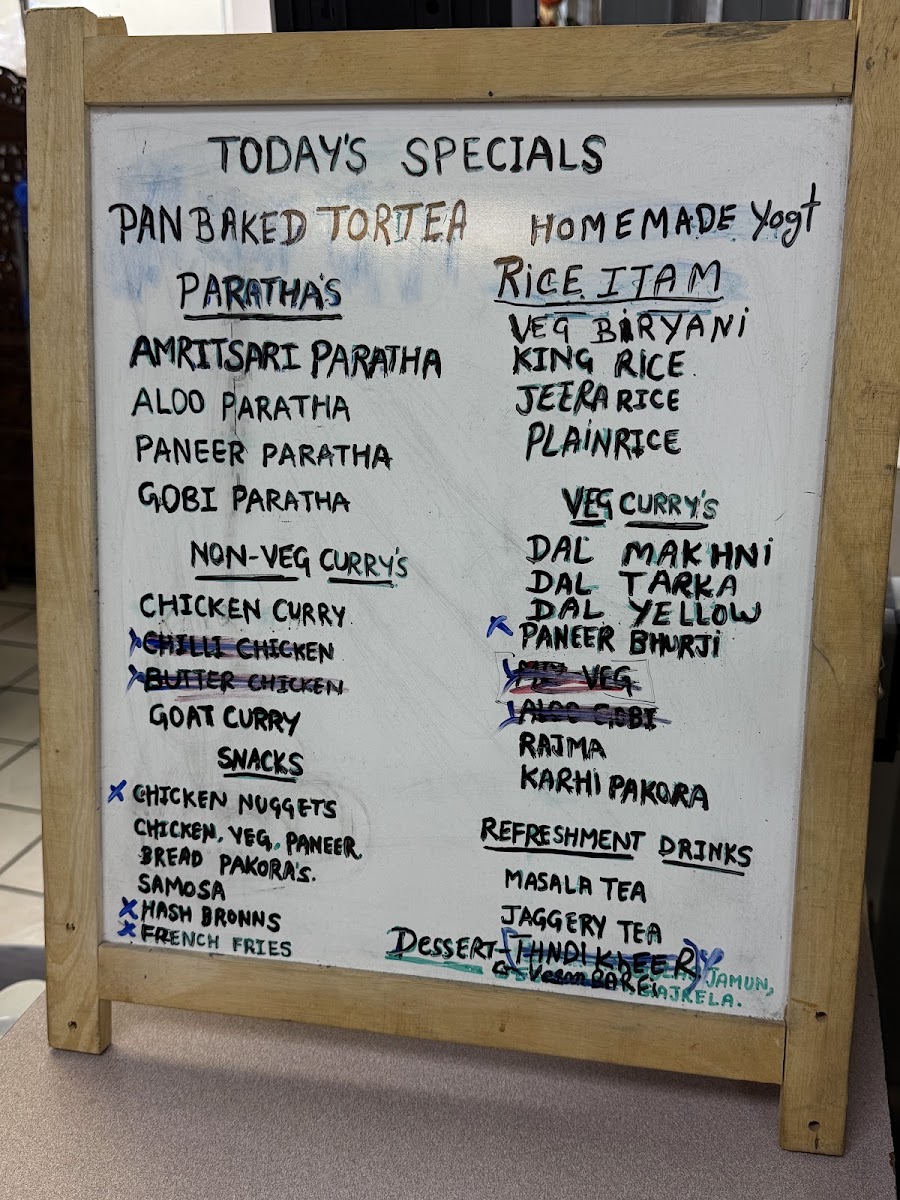 TODAY'S SPECIALS
PAN BAKED TORTEA
PARATHA'S
AMRITSARI PARATHA
ALOO PARATHA
PANEER PARATHA
GOBI PARATHA
NON-VEG CURRY'S
CHICKEN CURRY
CHILLI CHICKEN
BUTTER CHICKEN
GOAT CURRY
SNACKS
X CHICKEN NUGGETS
CHICKEN, VEG, PANEER
BREAD PAKORA'S.
SAMOSA
X HASH BRONNS
X FRENCH FRIES
HOMEMADE Yogt
RiCE ITAM
VEG BiRYANi
KING RICE
JEERA RICE
PLAiN RICE
VEG CURRY'S
DAL MAKHNi
DAL TARKA
DAL YELLOW
X PANEER BHURJi
VEG
ALOO GOBI
RAJMA
KARHI PAKORA
REFRESHMENT DRINKS
MASALA TEA
JAGGERY TEA
DESSERT- (THNDI KhEER)
Vesan BARFi JAMUN,
GAJRELA.